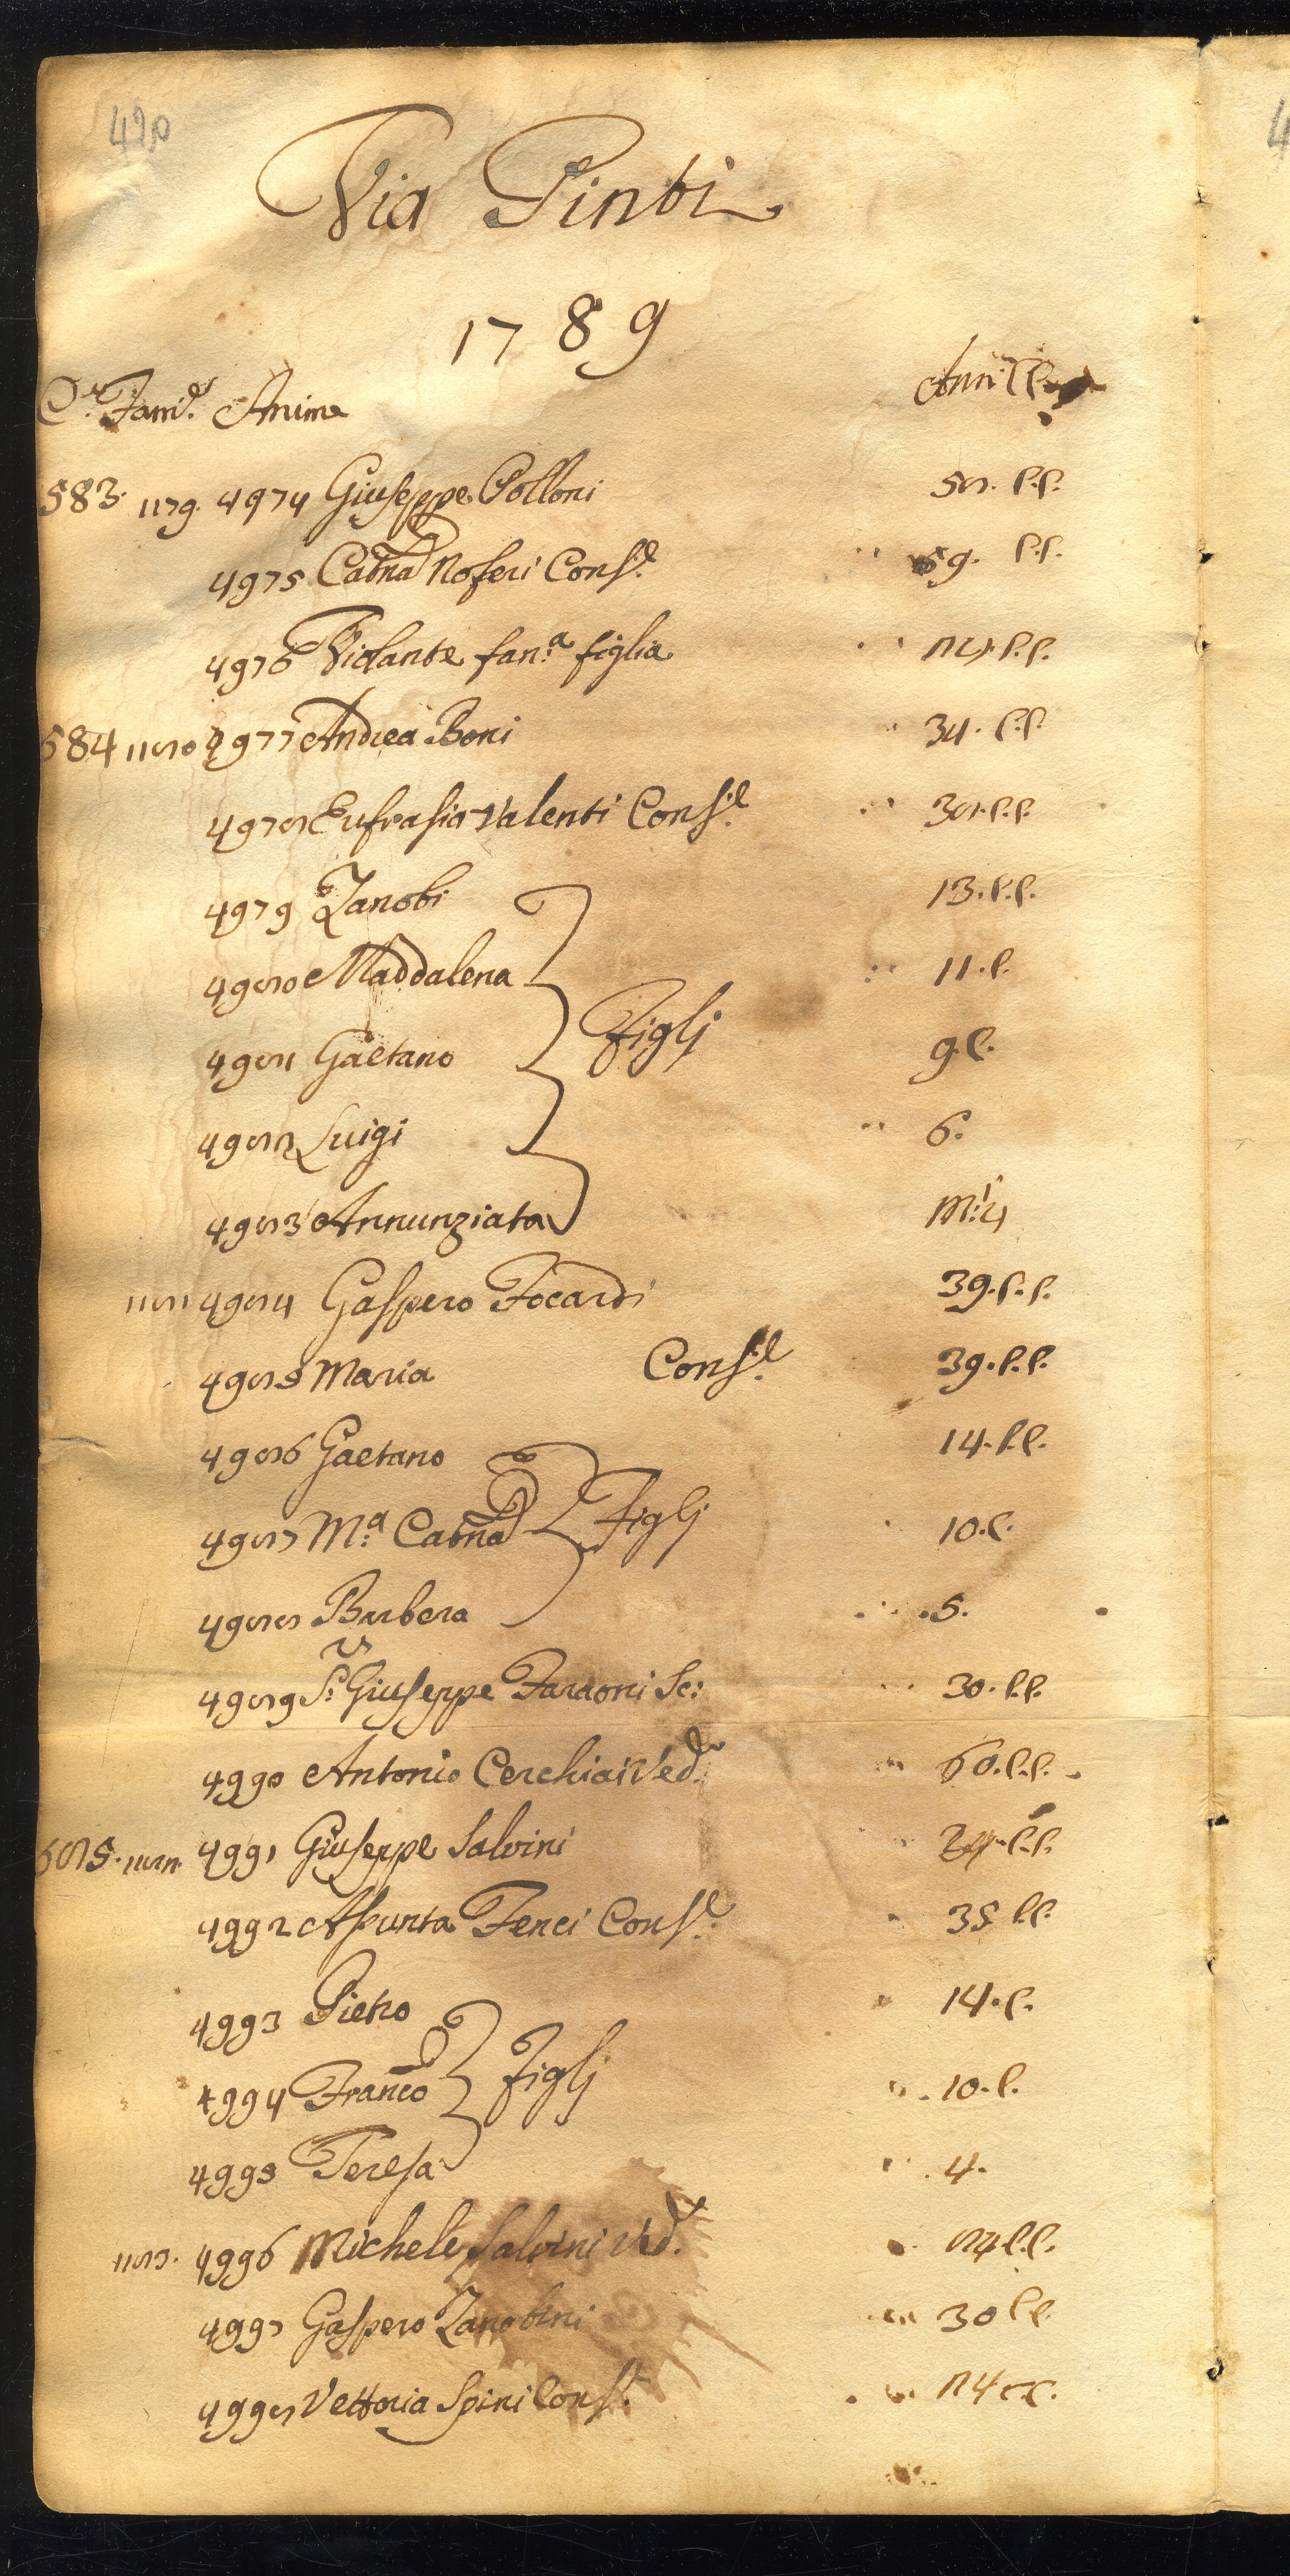 420
Via Pinti
1789
Ce. Fame. Anime Anni CC
583. 1179. 4974 Giuseppe Polloni 58. C.C.
4975 Catna Noferi Conse. 59. C.C.
4976 Violante fan.a figlia 24. C.C.
584 1180 4977 Andrea Boni 34. C.C.
4978 Eufrasia Valenti Conse. 38. C.C.
4979 Zanobi 13. C.C.
4980 Maddalena 11. C.
4981 Gaetano Figlj 9. C.
4982 Luigi 6.
4983 Annunziata M:i 4
1181 4984 Gaspero Focardi 39. C.C.
4985 Maria Conse. 39. C.C.
4986 Gaetano 14. C.C.
4987 M.a Catna Figlj 10. C.
4988 Barbera 5.
4989 S.r Giuseppe Faraoni Sc: 30. C.C.
4990 Antonio Cerchiai Ved.o 60. C.C.
585. 1182. 4991 Giuseppe Salvini C.C.
4992 Assunta Fenci Conse. 35 C.C.
4993 Pietro 14. C.
4994 Franco Figlj 10. C.
4995 Teresa 4.
1183. 4996 Michele Salvini Ved. 74 C.C.
4997 Gaspero Zanobini 30 C.C.
4998 Vettoria Spini Cons. 24 C.C.